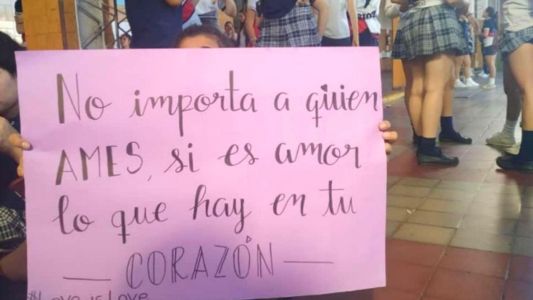 No importa a quien
AMES, si es amor
lo que hay en tu
— CORAZÓN —
#Love is Love